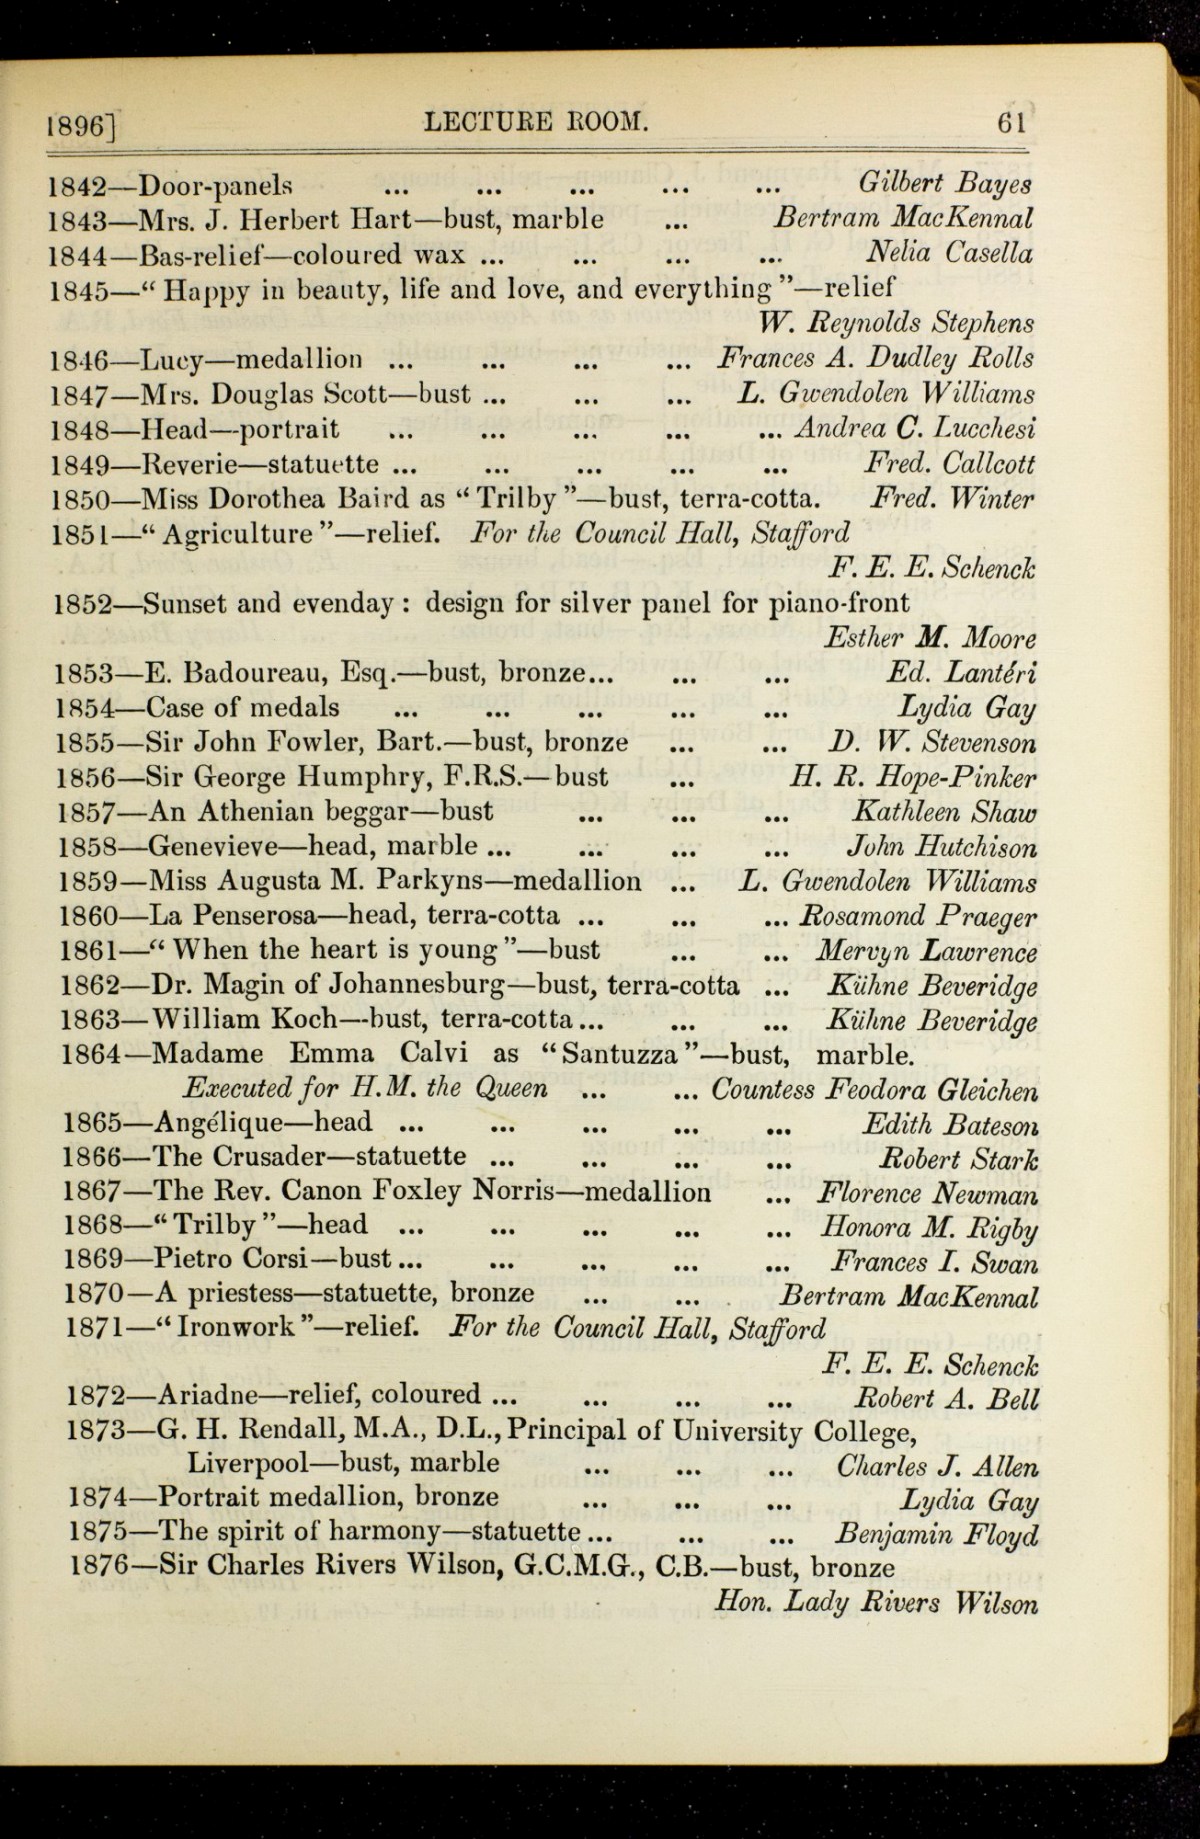 1896] LECTURE ROOM. 61
1842—Door-panels ... ... ... ... ... Gilbert Bayes
1843—Mrs. J. Herbert Hart—bust, marble ... Bertram MacKennal
1844—Bas-relief—coloured wax ... ... ... ... Nelia Casella
1845—“Happy in beauty, life and love, and everything”—relief
W. Reynolds Stephens
1846—Lucy—medallion ... ... ... ... Frances A. Dudley Rolls
1847—Mrs. Douglas Scott—bust ... ... ... L. Gwendolen Williams
1848—Head—portrait ... ... ... ... ... Andrea C. Lucchesi
1849—Reverie—statuette ... ... ... ... ... Fred. Callcott
1850—Miss Dorothea Baird as “Trilby”—bust, terra-cotta. Fred. Winter
1851—“Agriculture”—relief. For the Council Hall, Stafford
F. E. E. Schenck
1852—Sunset and evenday : design for silver panel for piano-front
Esther M. Moore
1853—E. Badoureau, Esq.—bust, bronze... ... ... Ed. Lantéri
1854—Case of medals ... ... ... ... ... Lydia Gay
1855—Sir John Fowler, Bart.—bust, bronze ... ... D. W. Stevenson
1856—Sir George Humphry, F.R.S.—bust ... H. R. Hope-Pinker
1857—An Athenian beggar—bust ... ... ... Kathleen Shaw
1858—Genevieve—head, marble ... ... ... ... John Hutchison
1859—Miss Augusta M. Parkyns—medallion ... L. Gwendolen Williams
1860—La Penserosa—head, terra-cotta ... ... ... Rosamond Praeger
1861—“When the heart is young”—bust ... ... Mervyn Lawrence
1862—Dr. Magin of Johannesburg—bust, terra-cotta ... Kühne Beveridge
1863—William Koch—bust, terra-cotta... ... ... Kühne Beveridge
1864—Madame Emma Calvi as “Santuzza”—bust, marble.
Executed for H.M. the Queen ... ... Countess Feodora Gleichen
1865—Angélique—head ... ... ... ... ... Edith Bateson
1866—The Crusader—statuette ... ... ... ... Robert Stark
1867—The Rev. Canon Foxley Norris—medallion ... Florence Newman
1868—“Trilby”—head ... ... ... ... ... Honora M. Rigby
1869—Pietro Corsi—bust... ... ... ... ... Frances I. Swan
1870—A priestess—statuette, bronze ... ... . Bertram MacKennal
1871—“Ironwork”—relief. For the Council Hall, Stafford
F. E. E. Schenck
1872—Ariadne—relief, coloured ... ... ... ... Robert A. Bell
1873—G. H. Rendall, M.A., D.L., Principal of University College,
Liverpool—bust, marble ... ... ... Charles J. Allen
1874—Portrait medallion, bronze ... ... ... Lydia Gay
1875—The spirit of harmony—statuette... ... ... Benjamin Floyd
1876—Sir Charles Rivers Wilson, G.C.M.G., C.B.—bust, bronze
Hon. Lady Rivers Wilson